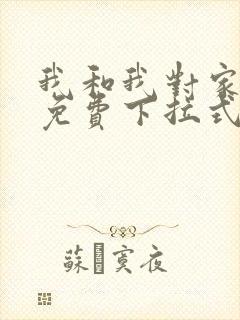 我和我对家
免費下拉式
蘇寞夜